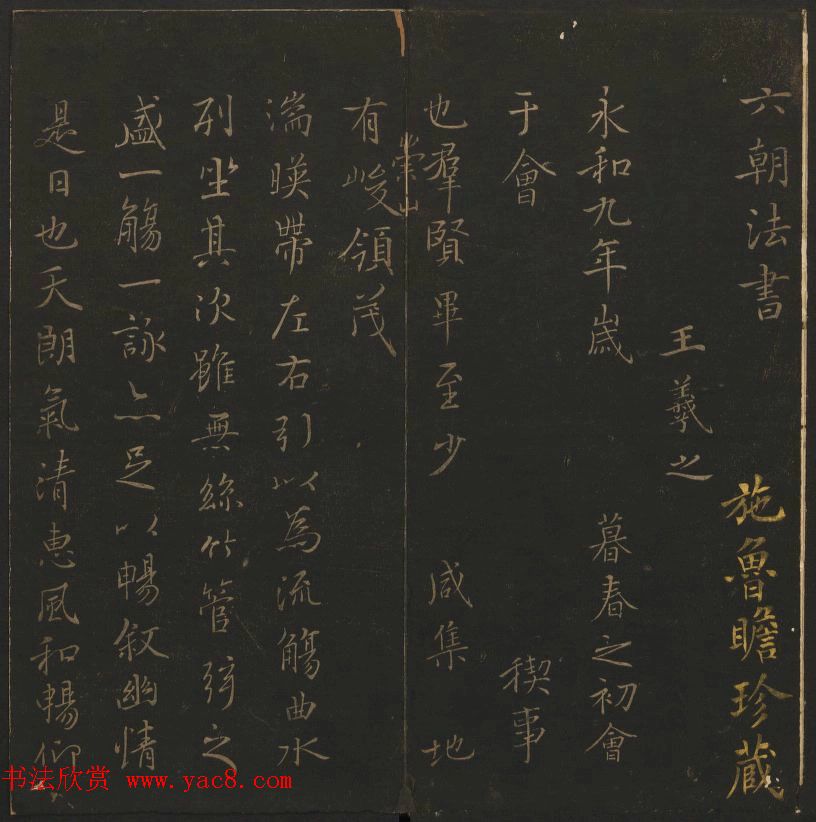 六朝法書
施魯瞻珍藏
王羲之
永和九年歲 暮春之初會
于會 稧事
也羣賢畢至少 咸集 地
有崇山峻領茂
湍暎帶左右引以為流觴曲水
列坐其次雖無絲竹管弦之
盛一觴一詠亦足以暢叙幽情
是日也天朗氣清惠風和暢仰
书法欣赏 www.yac8.com